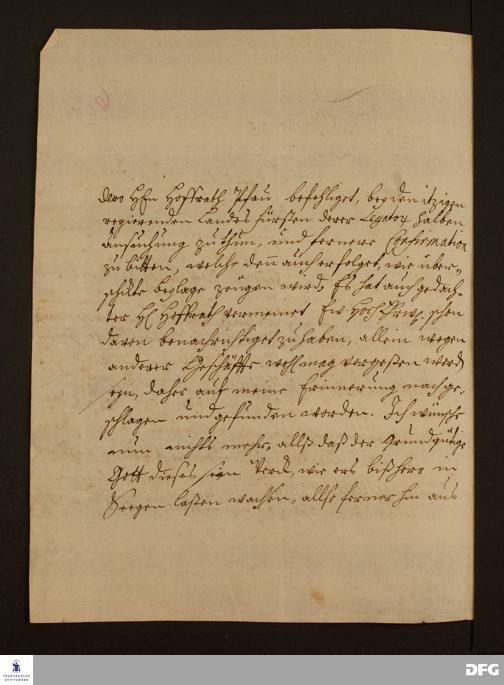 dero HEn Hoffrath Pfau befehliget, bey den itzigen
regierenden Landes Fürsten derer Legatorn halben
ansuchung zu thun, und fernere Confirmation
zu bitten, welche denn auch erfolget, wie über-
schickte beylage zeugen wird. Es hat auch gedach-
ter H. Hoffrath vermeinet Ew. Hoch schon
davon benachrichtiget zu haben, allein wegen
anderer Geschäffte wohl mag vergeßen worden
seyn, daher auf meine Erinnerung nachge-
schlagen und gefunden worden. Ich wünsche
nun nichts mehr, allß daß der Grundgütige
Gott dieses sein Werck, wie ers bißhero in
Seegen laßen wachsen, allso ferner hin aus
FRANCKESCHE
STIFTUNGEN
DFG